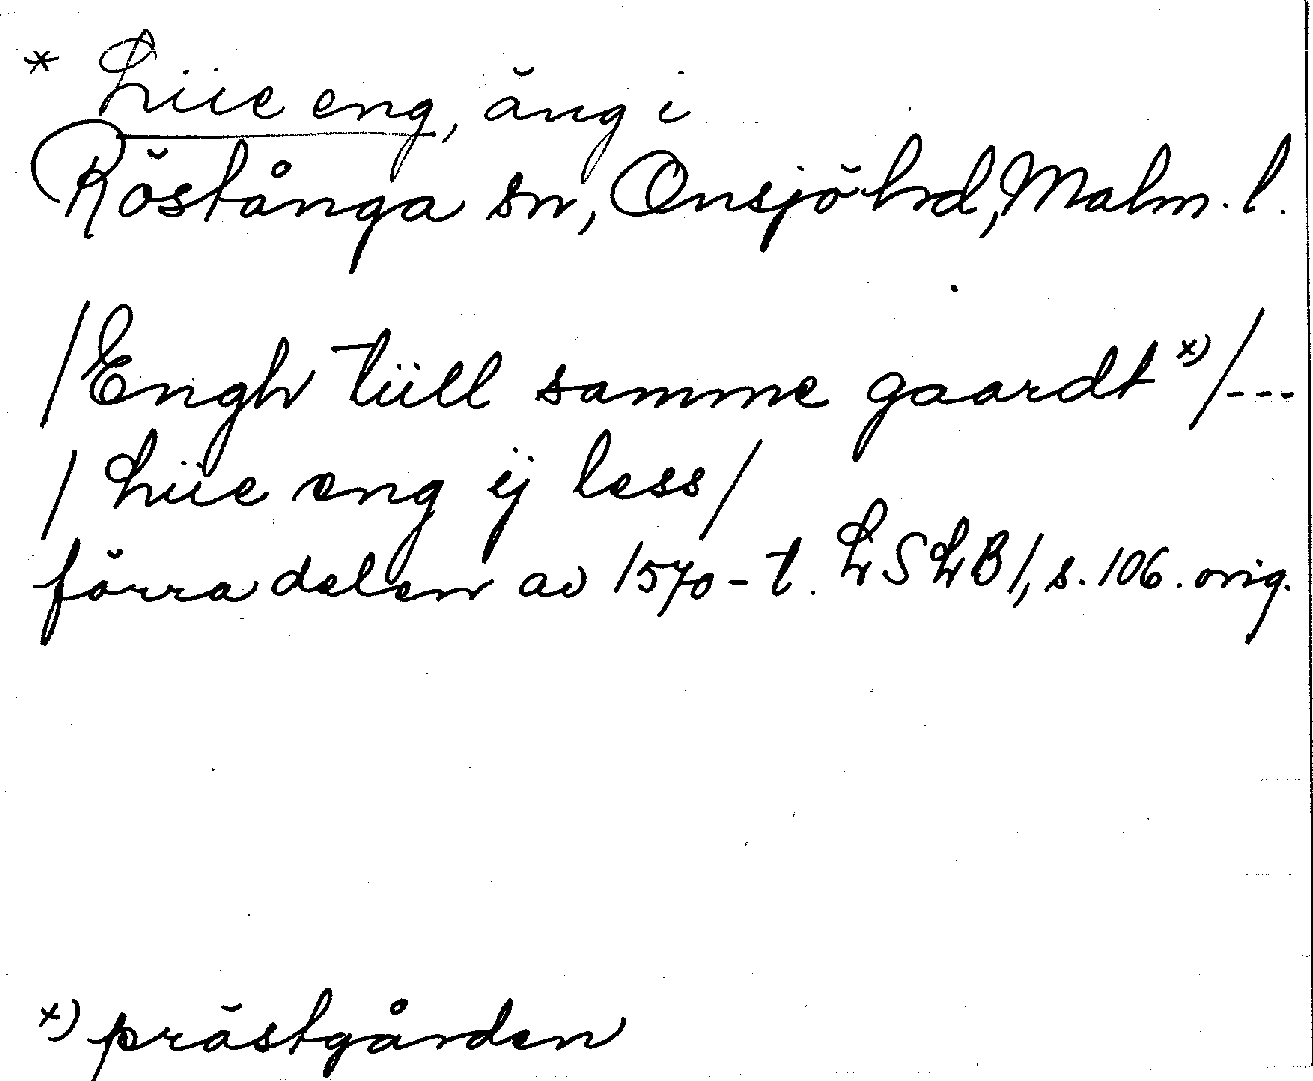 * Lüe eng, äng i
Röstånga sn, Onsjö hd, Malm. l.
/Engh tüll samme gaardt x)/---
/ Lüe eng ij less/
förra delen av 1570-t. LSLB 1, s. 106. orig.
x) prästgården